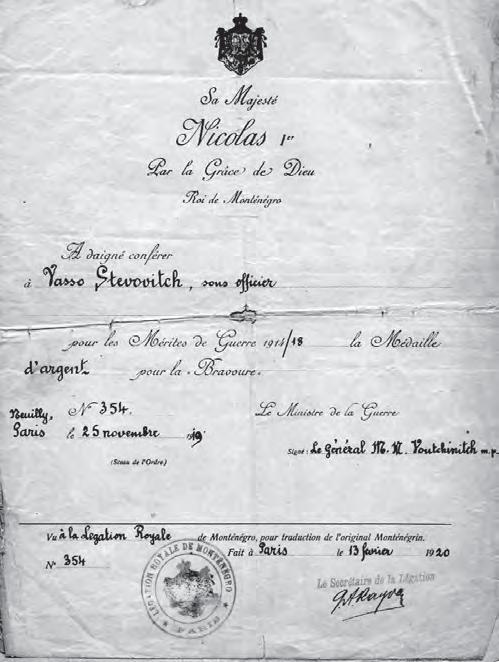 Sa Majesté
Nicolas Ier
Par la Grâce de Dieu
Roi de Monténégro
A daigné conférer
à Vasso Stevovitch, sous officier
pour les Mérites de Guerre 1914/18 la Médaille
d'argent pour la «Bravoure»
Neuilly, N° 354. Le Ministre de la Guerre
Paris le 25 novembre 19
(Sceau de l'Ordre) Signé: Le Général M. M. Voutchinitch m.p.
Vu à la Légation Royale de Monténégro, pour traduction de l'original Monténégrin.
Fait à Paris le 13 fevrier 1920
N° 354
LÉGATION ROYALE DE MONTÉNÉGRO
PARIS
Le Secrétaire de la Légation